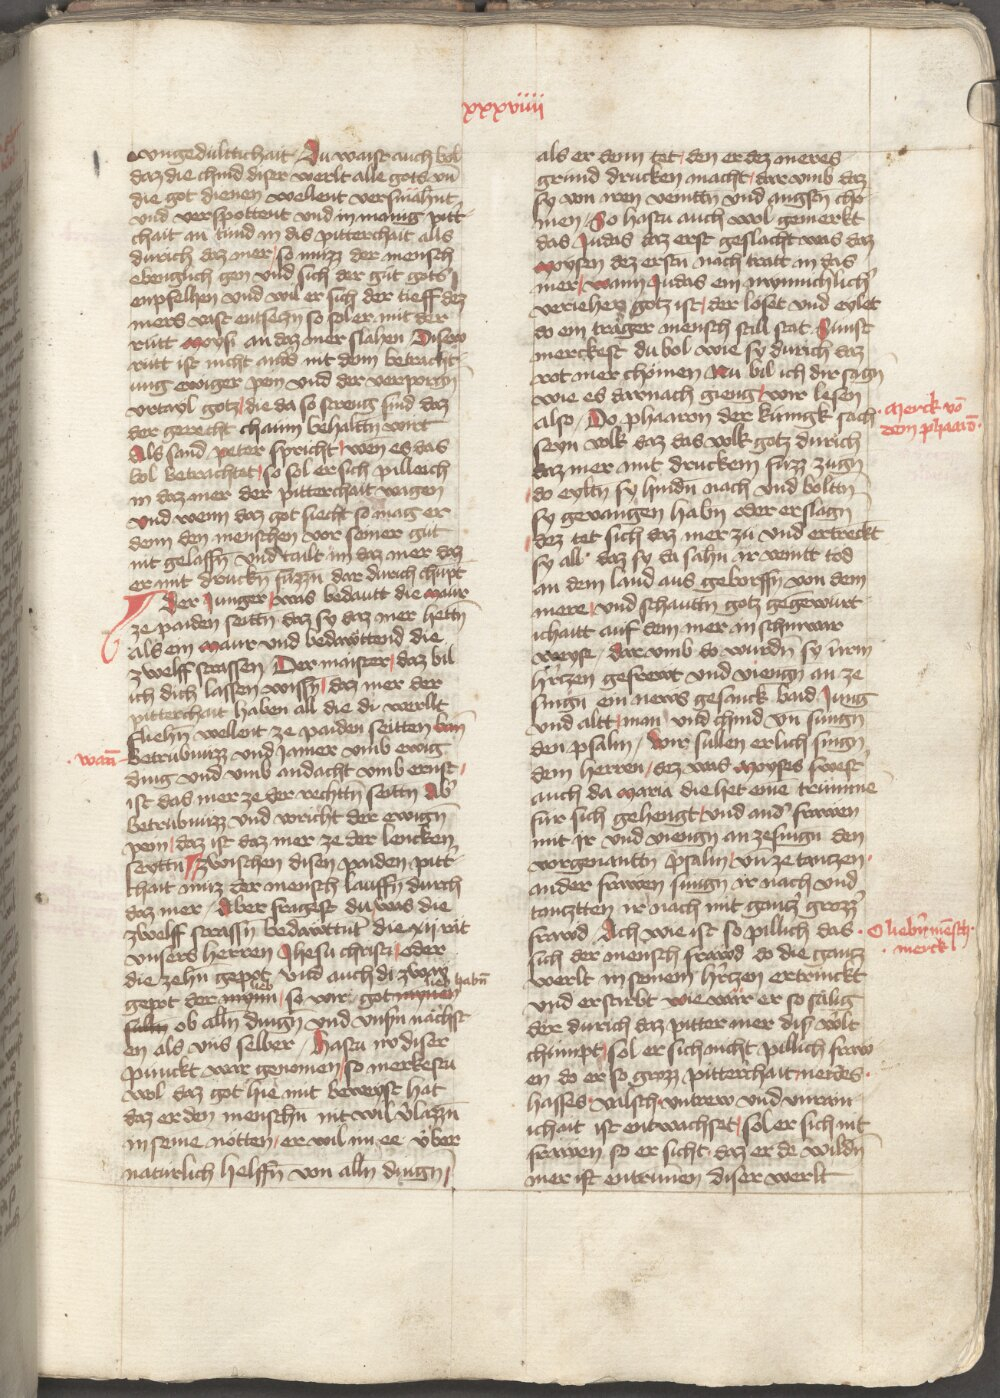 xxxviiii
ungedulttichait / Du waist auch bol
daz die chind diser werlt alle gots vn̄
die got dienen wellent versmähnt
vnd verspottent vnd in manig pitt
chait an tund in dis pitterchait alls
durich daz mer / so muzz der mensch
ebenglich gen vnd sich der güt gots
enpfelhen vnd wil er sich der tieff dez
mers vast entseczn so sol er mit der
rütt Moysi an daz mer slahen Disew
rütt ist nicht anders nit denn betracht
ung ewiger pen vnd der verporgn̄
vrtayl gotz / die da so streng sind daz
der gerecht chaum behaltn wirt
Als sand peter spricht / wen es das
bol betrachtet / so sol er sich pilleich
in daz mer der pitterchait wagen
vnd wenn daz got siecht so mag er
denn den menschen vor seiner güt
nit gelassn̄ vnd tailt im daz mer daz
er mit druckn füzzn dar durich chupt
Der Junger / was bedautt die maur
ze paiden seittn daz sy daz mer hettn̄
als ein maur vnd bedawttend die
zwelff strassen / Der maister / daz bil
ich dich lassen wissn̄ / daz mer der
pitterchait haben all die di werllt
fliehn wellent ze paiden seitten
wan̄
betrubnuzz vnd Jamer vmb ewig
ding vnd vmb andacht vmb ernst /
ist das mer ze der rechttn seittn Ab'
betrubnuzz vnd voricht der ewign̄
pem / daz ist daz mer ze der lencken
seyttn / zwischen disen paiden pitt
chait muz der mensch lauffn̄ durch
daz mer / Aber fragest du was die
zwelff strassn̄ bedawttnt die xii rät
vnsers herren Jhesu christi / oder
die zehn gepot vnd auch di zway
gepot der mynn lieb / so wir got mynen lieb habn̄
sulln ob alln̄ dingn̄ vnd vnsn̄ nachst
en als vns selber / Hastu nv diser
punckt war genomen / so merkestu
wol daz got hie mit beweyst hat
daz er den menschn̄ nit wil v̈lazzn̄
in seine nötten / er wil im ee v̈ber
naturlich helffn̄ von alln̄ dingn̄ /
als er denn tet / den er dez meres
grund drucken macht / dar vmb daz
sy von iren veintn̄ vnd angstn̄ chö
men / So hastu auch wol gemerkt
das Judas daz erst geslacht was daz
Moysen dez erstn nach tratt in das
mer / wann Judas ein inwnnichlich'
veriehez gotz ist / der löset vnd eylet
do ein träger mensch still stat / Sunst
merckest du bol wie sy durich daz
rot mer chömen Nu bil ich dir sagn̄
wie es darnach gieng / wir lesen
also / Do phaaron der künigk sach
merck vō
dem phaarō
seyn volk daz das volk gotz durich
daz mer mit druckem fuzz zugn̄
do eyltn̄ sy hindn̄ nach vnd boltn̄
sy gevangen habn̄ oder erslagn̄
dez tet sich daz mer zu vnd ertrenckt
sy all · daz sy da sahn ir veintt tod
an dem land aus geborffn̄ von dem
mere / vnd schauttn gotz gegewürt
ichaitt auf dem mer in schimvar
weyse / dar vmb do wurdn̄ sy in irm
h'rczen gefrewt vnd viengn̄ an ze
singn̄ ein news gesanck baid Jung
vnd altt / man vnd chind vn̄ sungn̄
den psalm / wir sullen erlich singn̄
dem herren / dez was Moyses swest'
auch da Maria die het eine trümme
für sich gehengt / vnd and' frawen
mit ir vnd viengn̄ an zesingn̄ den
vorgenanttn psalm / vn̄ ze tanczen ·
ander frawen sungn̄ ir nach vnd
tancztten ir nach mit gancz grozz'
frawd / Ach wie ist so pillich das ·
O liebn̄ mēsch
merck
sich der mensch frawd do die gancz
werlt in seinem h'rczen ertrinckt
vnd erstirbt wie wär er so sälig
der durich daz pitter mer dis' w'elt
chumpt / sol er sich nicht pillich fraw
en do er so grozz pitterchait neides ·
hasses · valsch · vntrew vnd vnrain
ichait ist entwachset / sol er sich nit
frawen so er sicht daz er de' wildn̄
mer ist entrunnen diser werlt